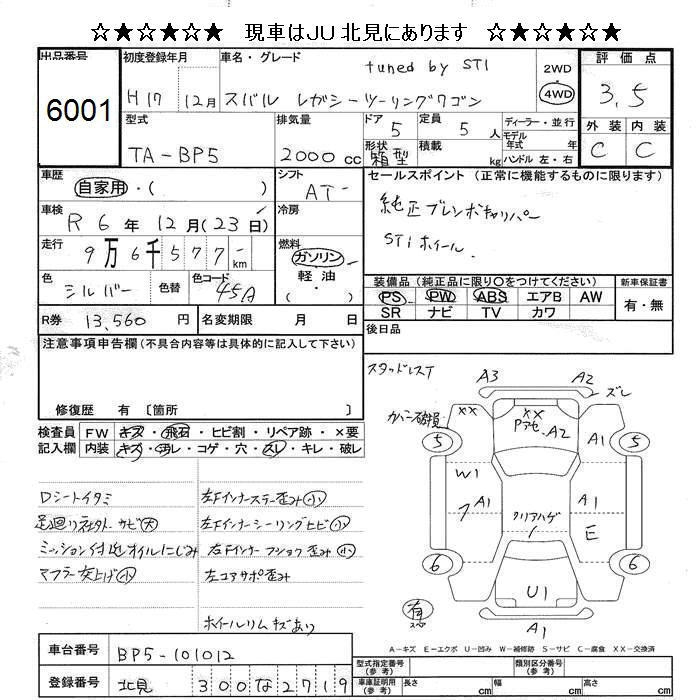 ☆★☆★☆★☆ 現車はJU北見にあります ☆★☆★☆★☆
出品番号
6001
初度登録年月
H17 12月
車名・グレード
tuned by STI
スバル レガシーツーリングワゴン
2WD
4WD
評価点
3.5
外装 内装
C C
型式
TA-BP5
排気量
2000cc
ドア 5
定員 5人
形状 箱型
積載 kg
ディーラー・並行
モデル年式 年
ハンドル 左・右
車歴
自家用・( )
シフト
AT
冷房
車検
R6年12月(23日)
走行
9万6千577km
燃料
ガソリン
軽油
・( )
色
シルバー
色替
色コード
45A
R券 13,560円
名変期限 月 日
セールスポイント (正常に機能するものに限ります)
純正ブレンボキャリパー
STiホイール
装備品(純正品に限り〇をつけてください)
PS PW ABS エアB AW
SR ナビ TV カワ
新車保証書
有・無
後日品
注意事項申告欄(不具合内容等は具体的に記入して下さい)
修復歴 有 〔箇所
検査員記入欄
FW キズ・飛石・ヒビ割・リペア跡・×要
内装 キズ・汚レ・コゲ・穴・スレ・キレ・破レ
Dシートイタミ
足廻り
サビ大
ミッション付近オイルにじみ
マフラー交上げ小
左Fインナーステー歪み小
左Fインナーシーリングヒビ小
左Fインナー
歪み小
左コアサポ歪み
ホイールリムキズあり
スタッドレスT
カバー破損
A3 A2
ズレ
XX
XX
Pアセ A2
A1
5 5
W1
A1
A1
クリアハゲ
E
6 6
U1
有
スペ
A1
A-キズ E-エクボ U-凹み W-補修跡 S-サビ C-腐食 XX-交換済
車台番号
BP5-101012
登録番号
北見 300な2719
型式指定番号(参考)
類別区分番号(参考)
車庫証明用(参考)
長さ cm 幅 cm 高さ cm